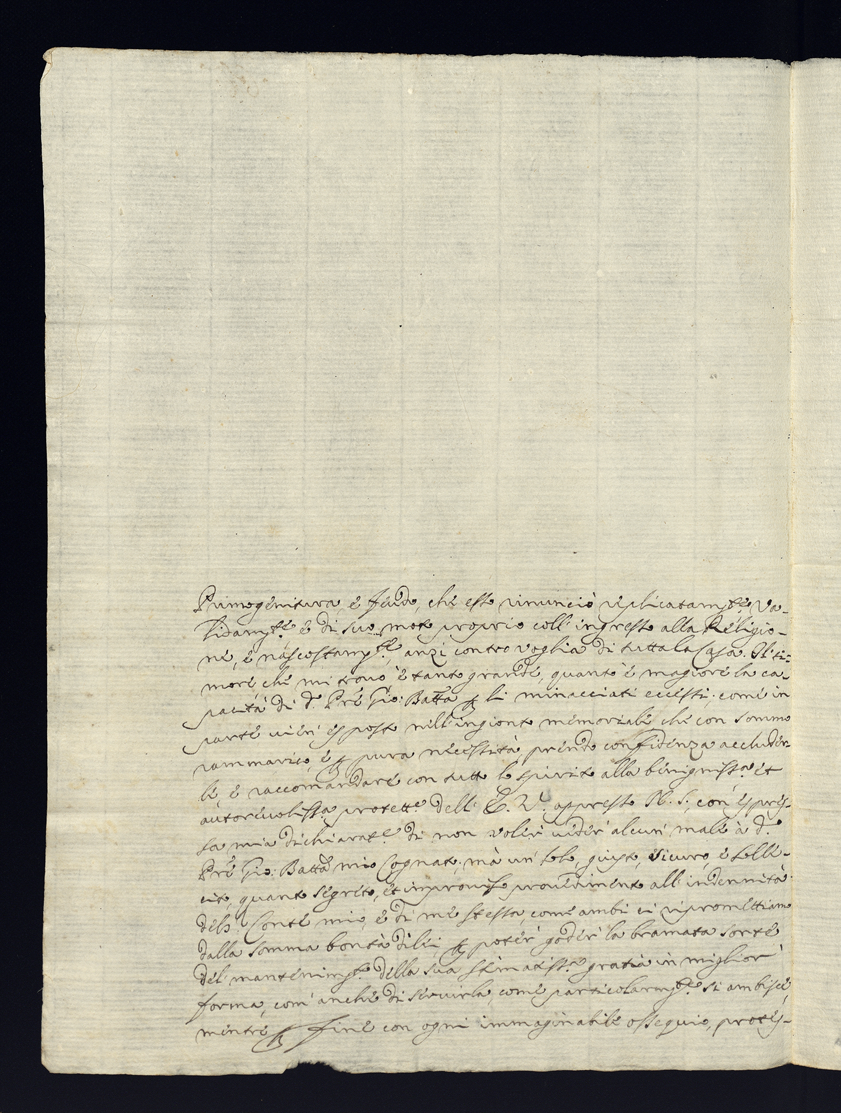 Primogenitura, è feudo, che esso rinunciò replicatam.te va-
lidam.te è di suo moto proprio coll'ingresso alla Religio-
ne, è nascostam.te, anzi contro voglia di tutta la Casa. Il ti-
more che mi trovo è tanto grande, quanto è magiore la ca-
pacità di d.o Pre Gio: Batta li minacciati eccessi: come in
parte vien' esposto nell'ingionto memoriale che con sommo
rammarico, è p pura necessità prendo confidenza accluder-
le, è raccomandare con tutto lo spirito alla benigniss.a et
autorevoliss.a protett.e dell'E. V. appresso N. S., con' espres-
sa mia dichiarat.e di non voler' veder' alcun' male à d.o
Pre Gio: Batta mio Cognato, mà un' solo, giusto, sicuro, è solle-
cito, quanto segreto, et improviso provedimento all'indennità
del Conte mio, è di me stessa come ambi ci ripromettiamo
dalla somma bontà di lei p poter' goder' la bramata sorte
del mantenim.to della sua stimatiss.a gratia in miglior'
forma, com' anche di servirla, come particolarm.te si ambisce,
mentre p fine con ogni immaginabile ossequio, protes-